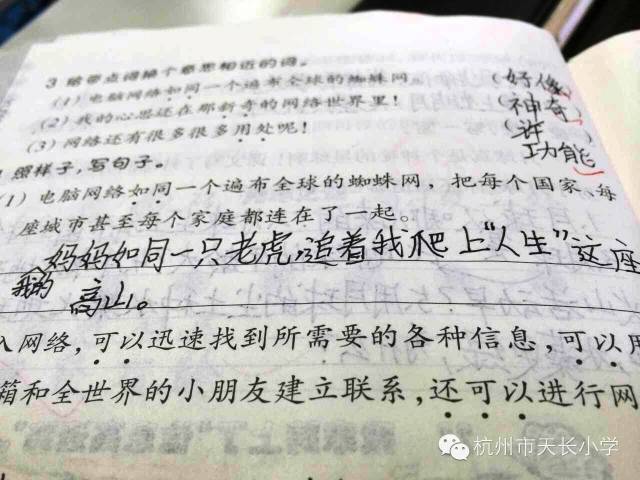 3 给带点词换个意思相近的词。
(1)电脑网络如同一个遍布全球的蜘蛛网。 (好像)
(2)我的心思还在那新奇的网络世界里! (神奇)
(3)网络还有很多很多用处呢! (许功能
照样子,写句子。
(1)电脑网络如同一个遍布全球的蜘蛛网,把每个国家、每
座城市甚至每个家庭都连在了一起。
我的妈妈如同一只老虎,追着我爬上“人生”这座
高山。
入网络,可以迅速找到所需要的各种信息,可以用
箱和全世界的小朋友建立联系,还可以进行网
杭州市天长小学